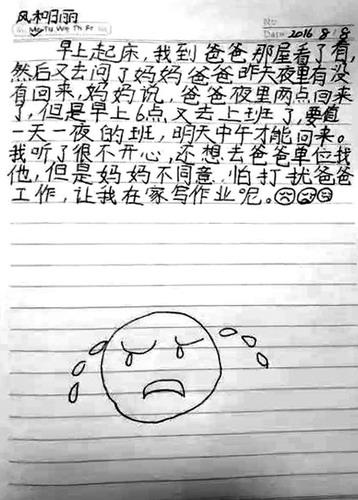 风和日丽
No
Mo Tu We Th Fr
Date 2016 8 8
早上起床,我到爸爸那屋看了看,
然后又去问了妈妈爸爸昨天夜里有没
有回来,妈妈说,爸爸夜里两点回来
了,但是早上6点,又去上班了,要值
一天一夜的班,明天中午才能回来。
我听了很不开心,还想去爸爸单位找
他,但是妈妈不同意,怕打扰爸爸
工作,让我在家写作业呢。